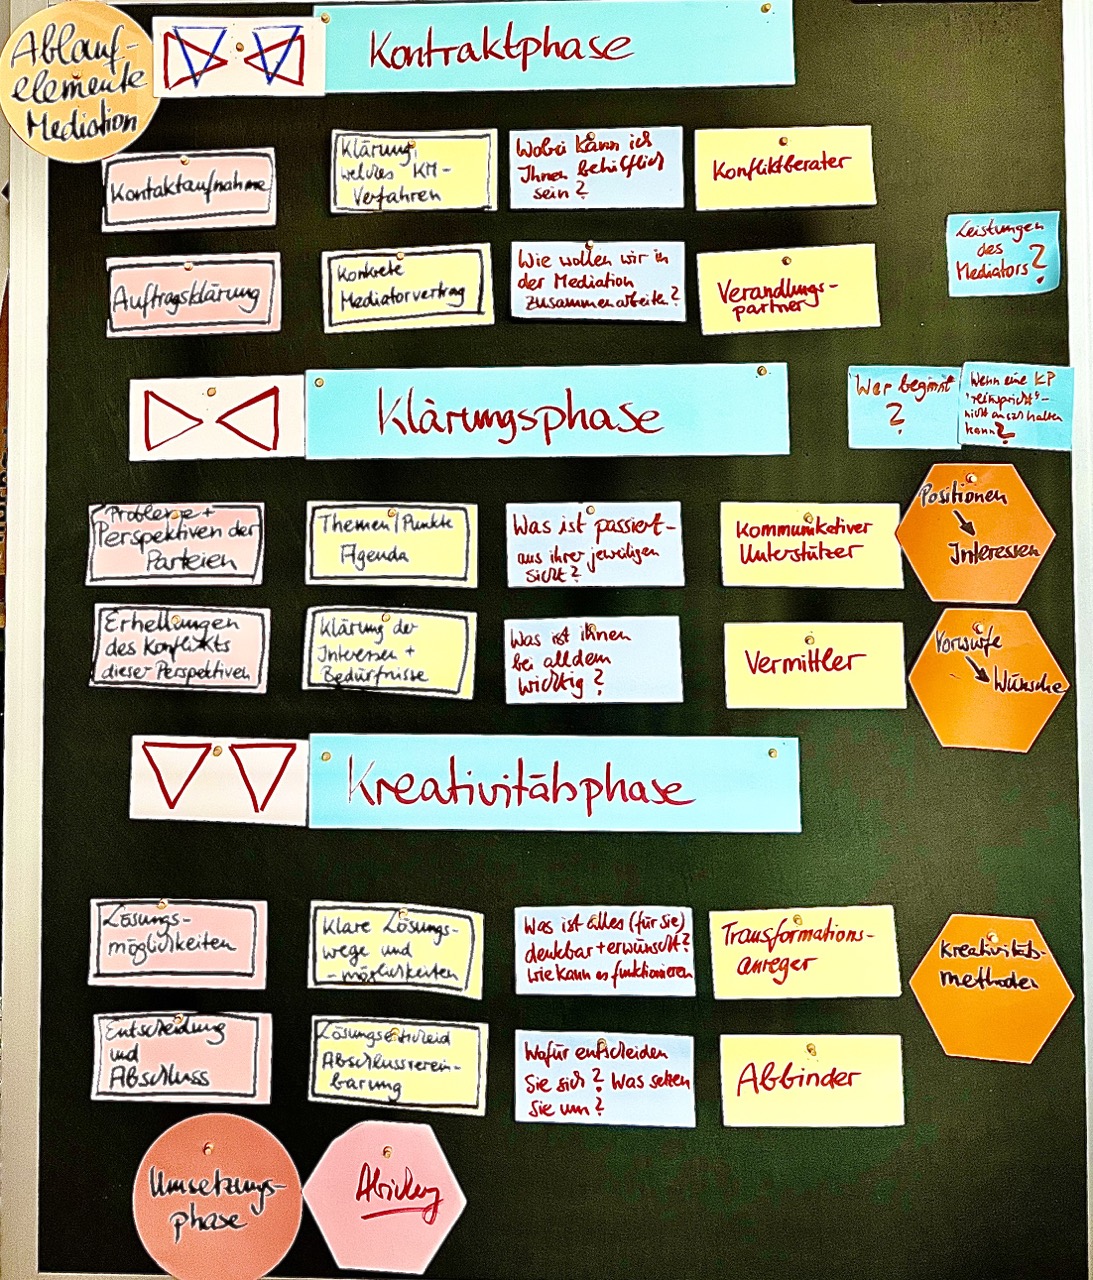 Ablauf-
elemente
Mediation
Kontraktphase
Kontaktaufnahme
Klärung,
welches KM-
Verfahren
Wobei kann ich
Ihnen behilflich
sein?
Konfliktberater
Auftragsklärung
Konkrete
Mediatorvertrag
Wie wollen wir in
der Mediation
zusammenarbeiten?
Verandlungs-
partner
Leistungen
des
Mediators?
Klärungsphase
Wer beginnt
?
Wenn eine KP
nicht auszuhalten
kann?
Probleme +
Perspektiven der
Parteien
Themen/Punkte
Agenda
Was ist passiert -
aus ihrer jeweiligen
Sicht?
Kommunikativer
Unterstützer
Positionen
Interessen
Erhellungen
des Konflikts
dieser Perspektiven
Klärung der
Interessen +
Bedürfnisse
Was ist ihnen
bei alldem
wichtig?
Vermittler
Vorwürfe
Wünsche
Kreativitätsphase
Lösungs-
möglichkeiten
Klare Lösungs-
wege und
-möglichkeiten
Was ist alles (für Sie)
denkbar + erwünscht?
Wie kann es funktionieren
Transformations-
anreger
Kreativitäts-
methoden
Entscheidung
und
Abschluss
Lösungsentscheid
Abschlussverein-
barung
Wofür entscheiden
Sie sich? Was setzen
Sie um?
Abbinder
Umsetzungs-
phase